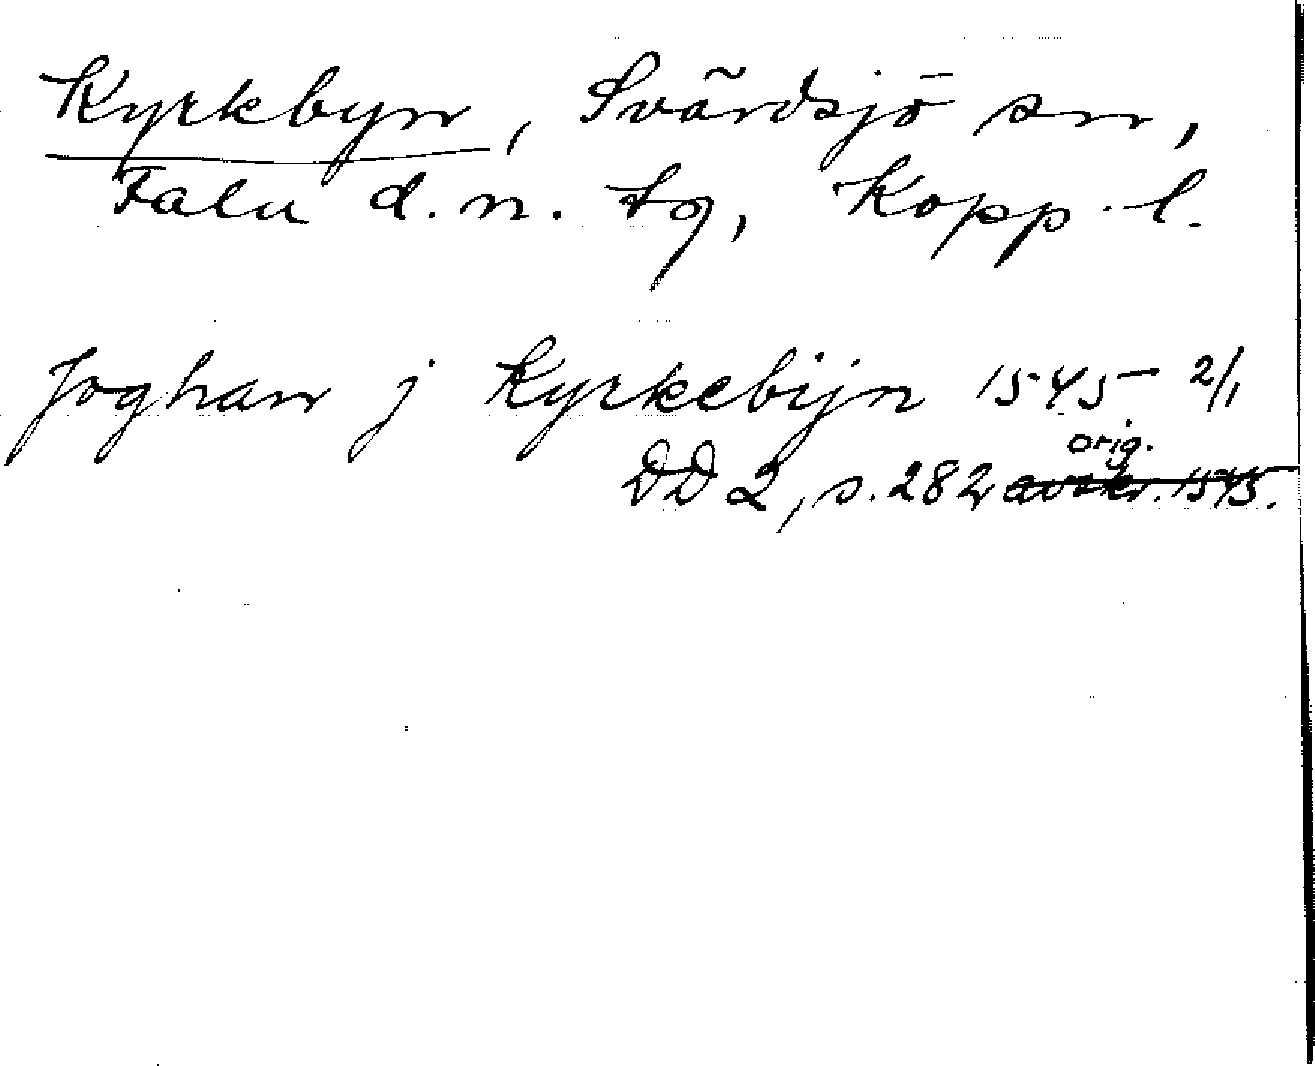 Kyrkbyn, Svärdsjö sn,
Falu d. n. tg, Kopp. l.
Joghan j Kyrkebijn 1545 2/1
orig.
DD 2, s. 282, avskr. 1545.